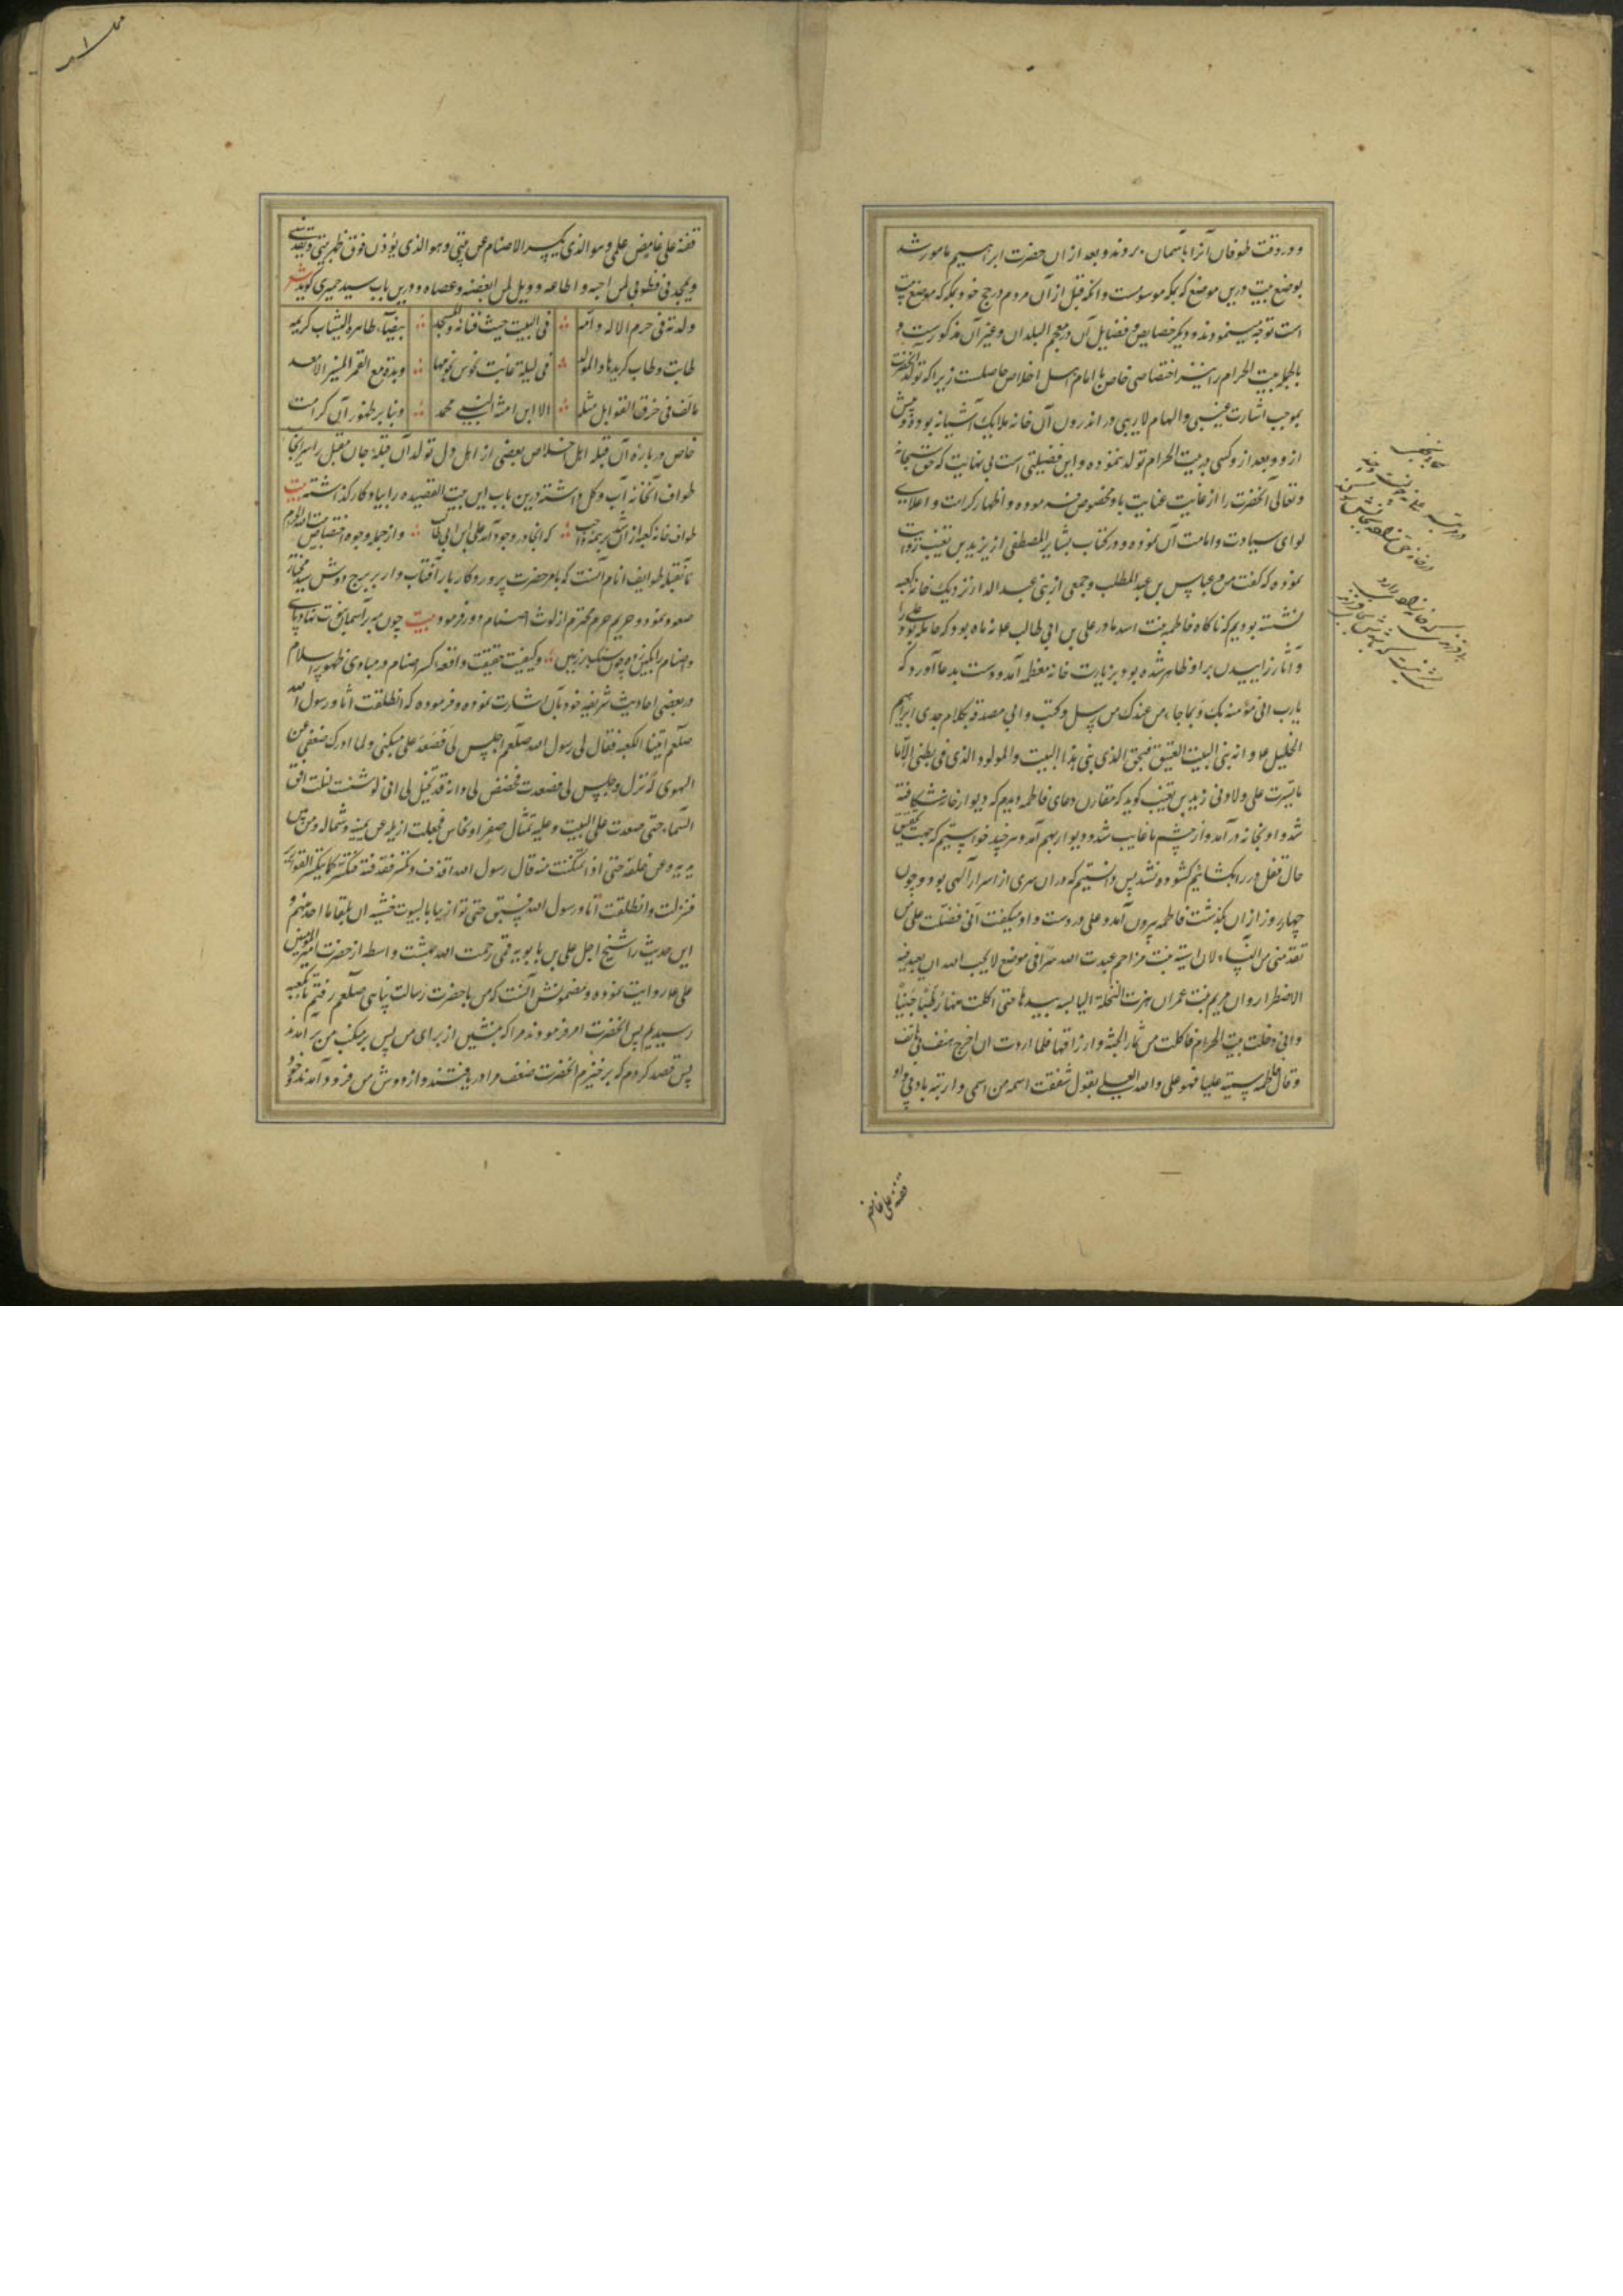 و در وقت طوفان آنرا باسمان بردند و بعد از ان حضرت ابراهیم مامور شد
بوضع بیت درین موضع که بمکه موسومست و آنکه قبل از آن مردم در حج خود بمکه که موضع بیت
است توجه مینمودند و دیگر خصایص و فضایل آن در معجم البلدان و غیر آن مذکورست و
بالجمله بیت الحرام را نیز اختصاصی خاص با امام اهل اخلاص حاصلست زیرا که تولد آنحضرت
بموجب اشارت غیبی و الهام لاریبی در اندرون آن خانه ملایک آشیانه بوده و پیش
ازو و بعد ازو کسی در بیت الحرام تولد ننموده و این فضیلتی است بی نهایت که حق سبحانه
و تعالی آنحضرت را از غایت عنایت باو مخصوص فرموده و اظهار کرامت و اعلای
لوای سیادت و امامت آن نموده و در کتاب بشایر المصطفی از یزید بن قعنب روایت
نموده که گفت من و عباس بن عبد المطلب و جمعی از بنی عبد الدار نزدیک خانه کعبه
نشسته بودیم که ناکاه فاطمه بنت اسد مادر علی بن ابی طالب علا نه ماه بود که حامله بود علی را
و آثار زاییدن برو ظاهر شده بود بزیارت خانه معظمه آمد و دست بدعا آورد که
یارب انی مؤمنة بک و بما جاء من عندک من رسل و کتب و انی مصدقة بکلام جدی ابراهیم
الخلیل علا و انه بنی البیت العتیق فبحق الذی بنی هذا البیت و المولود الذی فی بطنی الا ما
یسرت علی ولادتی زید بن قعنب کوید که مقارن دعای فاطمه دیدم که دیوار خانه شکافته
شد و او بخانه در آمد و از چشم ما غایب شد و دیوار بهم آمد و هر چند خواستیم که جهت تحقیق
حال قفل در را بکشائیم کشوده نشد پس دانستیم که در ان سری از اسرار آلهی بود و چون
چهار روز از ان بکذشت فاطمه بیرون آمد و علی در دست و او میکفت انی فضلت علی من
تقدمنی من النساء لان اسیة بنت مزاحم عبدت الله سرا فی موضع لا یحب الله ان یعبد فیه
الا اضطرارا و ان مریم بنت عمران هزت النخلة الیابسة بیدها حتی اکلت منها رطبا جنیا
و انی دخلت بیت الحرام فاکلت من ثمار الجنة و ارزاقها فلما اردت ان اخرج هتف بی هاتف
و قال یا فاطمه سمیه علیا فهو علی و الله العلی یقول شققت اسمه من اسمی و ادبته بادبی و او
قفته علی غامض
قفته علی غامض علمی و هو الذی یکسر الاصنام عن بیتی و هو الذی یؤذن فوق ظهر بیتی و یقدسنی
و یمجدنی فطوبی لمن احبه و اطاعه و ویل لمن ابغضه و عصاه و درین باب سید حمیری کوید شعر
ولدته فی حرم الاله و امنه فی البیت حیث فنائه و المسجد بیضاء طاهرة الثیاب کریمه
طابت و طاب کریدها و المولد فی لیلة غابت نحوس نجومها و بدت مع القمر المنیر الاسعد
ما لف فی خرق القوابل مثله الا ابن امنة النبی محمد و بنا بر ظهور آن کرامت
خاص در باره آن قبله اهل اخلاص بعضی از اهل دل تولد آن قبله جان مقبل را سر ایجاب
طواف آنخانه آب و کل داشته درین باب این بیت القصیده را بیادکار کذاشته بیت
طواف خانه کعبه از آن شد بر همه واجب که آنجا در وجود آمد علی ابن ابی طالب و از جمله وجوه اختصاص بیت الله الحرام
بآنقبله طوایف انام آنست که بامر حضرت پروردکار بار آفتاب وار بر برج دوش سید مختار
صعود نموده و حریم حرم محترم از لوث اصنام دور فرمود بیت چون مه بر آسمان نبوت نهاد پای
و اصنام را بکین زد چون سنک بر زمین و کیفیت حقیقت واقعه کسر اصنام در مبادی ظهور اسلام
در بعضی احادیث شریفه خود بآن اشارت نموده و فرموده که انطلقت انا و رسول الله
صلعم اتینا الکعبه فقال لی رسول الله صلعم اجلس لی فصعد علی منکبی و لما ادرک ضعفی عن
النهوض نزل و جلس لی فصعدت فنهض لی و انه قد تخیل لی انی لو شئت لنلت افق
السماء حتی صعدت علی البیت و علیه تمثال صفر او نحاس فجعلت ازیله عن یمینه و شماله و من بین
یدیه و عن خلفه حتی اذا تمکنت منه قال رسول الله اقذف و کسر فقذفته فتکسر کما یتکسر القواریر
فنزلت و انطلقت انا و رسول الله فنستبق حتی تواریبا بالبیوت خشیه ان یلقانا احد منهم و
این حدیث را شیخ اجل علی بن بابویه قمی رحمت الله بهشت واسطه از حضرت امیر المومنین
علی علا روایت نموده و مضمونش آنست که من با حضرت رسالت پناهی صلعم رفتیم تا بکعبه
رسیدیم پس آنحضرت امر فرمودند مرا که بنشین از برای من پس بر منکب من بر آمدند
پس قصد کردم که برخیزم آنحضرت ضعف مرا دریافتند و از دوش من فرود آمدند و خود